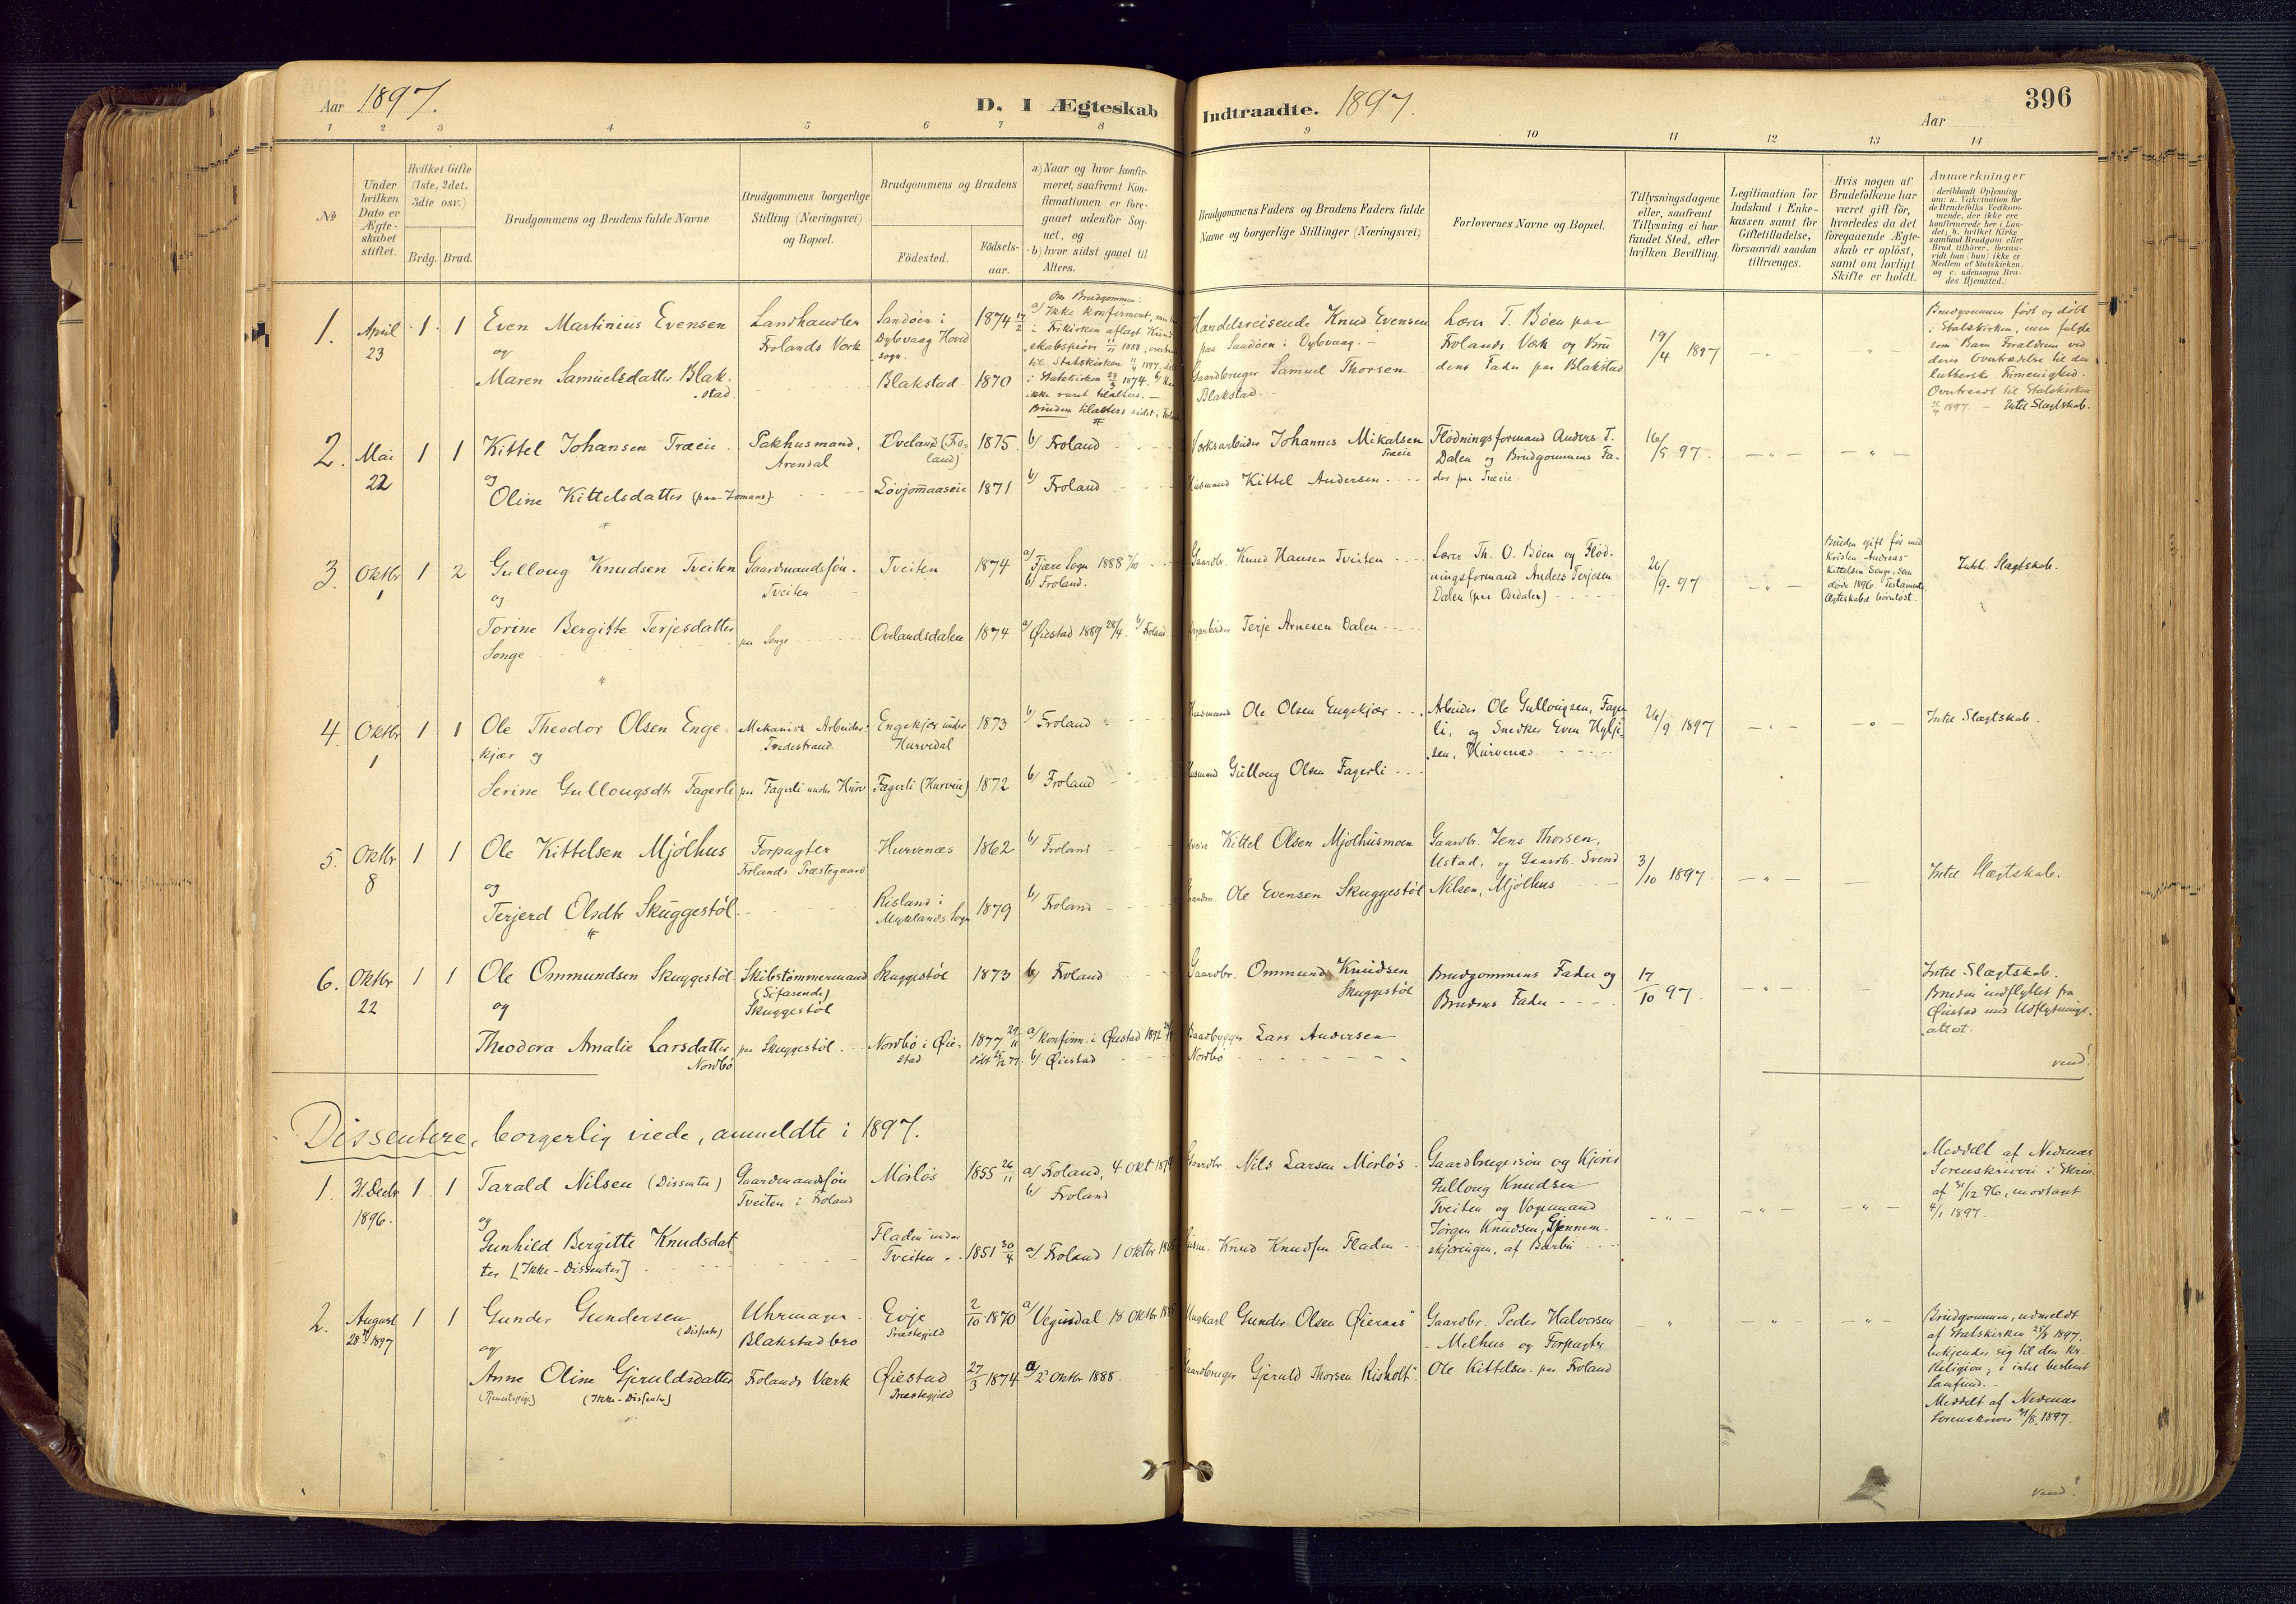 Aar 1897. D. I Ægteskab
1 2 3 4 5 6 7 8
№
Under hvilken Dato er Ægteskabet stiftet.
Hvilket Gifte (1ste, 2det, 3die osv.)
Brdg. Brud.
Brudgommens og Brudens fulde Navne
Brudgommens borgerlige Stilling (Næringsvei) og Bopæl.
Brudgommens og Brudens
Födested. Födselsaar.
a) Naar og hvor konfirmeret, saafremt Konfirmationen er foregaaet udenfor Sognet, og
b) hvor sidst gaaet til Alters.
1. April 23 1 1 Even Martinius Evensen
Landhandler
Frolands Værk
Sandöen i
Dybvaag Hovedsogn.
1874 17/2
Om Brudgommen:
a) Ikke konfirmeret, men
i Frikirken aflagt Kundskabspröve 11/11 1888;
til Statskirken 11/4 1897,
i Statskirken 29/3 1874. b)
ikke været tilalters. —
Bruden tilalters sidst i
og
Maren Samuelsdatter Blakstad
Blakstad 1870
2. Mai 22 1 1 Kittel Johansen Træeie
Pakhusmand, Arendal
Oveland (Froland)
1875 b) Froland
og
Oline Kittelsdatter
Lövjomaaseie 1871 b) Froland
3. Oktbr 1 1 2 Gulloug Knudsen Tveiten
Gaardmandsön
Tveiten
Tveiten 1874 a) Fjære Sogn 1888 7/10
b) Froland.
og
Torine Bergitte Terjesdatter
Songe
paa Songe Ovelandsdalen 1874 a) Øiestad 1889 28/4. b) Froland
4. Oktbr 1 1 1 Ole Theodor Olsen Engekjær og
Mekanisk Arbeider
Tvedestrand
Engekjær under
Hurvedal
1873 b) Froland
Serine Gullougsdtr Fagerli paa Fagerli under Hurv Fagerli (Hurveie) 1872 b) Froland
5. Oktbr 8 1 1 Ole Kittelsen Mjölhus
Forpagter
Frolands Præstegaard
Hurvenæs 1862 b) Froland
og
Terjerd Olsdtr Skuggestöl
Risland i
Myklands Sogn
1879 b) Froland
6. Oktbr 22 1 1 Ole Ommundsen Skuggestöl
Skibstømmermand
(Söfarende)
Skuggestöl
Skuggestöl 1873 b) Froland
og
Theodora Amalie Larsdatter
Nordbö
paa Skuggestöl Nordbö i Øiestad
1877 29/11
döbt 25/12 77.
a) Konfirm. i Øiestad 1892
b) Øiestad
Dissentere, borgerlig viede, anmeldte i 1897.
1. 31. Decbr 1896. 1 1 Tarald Nilsen (Dissenter)
Gaardmandsön
Tveiten i Froland
Mörlös 1855 26/11 a) Froland, 4 Okt
b) Froland
og
Gunhild Bergitte Knudsdatter [Ikke-Dissenter]
Fladen under
Tveiten 1851 30/4 a) Froland 1 Oktbr
2. August 28 1897 1 1 Gunder Gundersen
(Dissenter)
Uhrmager
Blakstadbro
Evje
Præstegjeld
2/10 1870 a) Vegusdal 18 Oktbr
og
Anne Oline Gjeruldsdatter
(Tjenestepige) (Ikke-Dissenter)
Frolands Værk
Øiestad
Præstegjeld
27/3 1874 a) 2 Oktbr 1888
Indtraadte. 1897. Aar 396
9 10 11 12 13 14
Brudgommens Faders og Brudens Faders fulde Navne og borgerlige Stillinger (Næringsvei)
Forlovernes Navne og Bopæl.
Tillysningsdagene eller, saafremt Tillysning ei har fundet Sted, efter hvilken Bevilling.
Legitimation for Indskud i Enkekassen samt for Giftetilladelse, forsaavidt saadan tiltrænges.
Hvis nogen af Brudefolkene har været gift för, hvorledes da det foregaaende Ægteskab er oplöst, samt om lovligt Skifte er holdt.
Anmærkninger
(deriblandt Oplysning om: a. Vakcination for de Brudefolks Vedkommende, der ikke ere konfirmerede her i Landet; b. hvilket Kirkesamfund Brudgom eller Brud tilhører, forsaavidt han (hun) ikke er Medlem af Statskirken, og c. udensogns Brudes Hjemsted.)
Handelsreisende Knud Evensen
paa Sandöen i Dybvaag. —
Gaardbruger Samuel Thorsen
Blakstad. —
Lærer T. Böen paa
Frolands Værk og Brudens Fader paa Blakstad
19/4 1897
Brudgommen födt og döbt
i Statskirken, men fulgte
som Barn Forældrene ved
deres Overtrædelse til den
lutherske Frimenighed.
Overtraadt til Statskirken
11/4 1897. — Intet Slægtskab.
Værksarbeider Johannes Mikalsen
Træeie
Husmand Kittel Andersen
Flödningsformand Anders T.
Dalen og Brudgommens Fader paa Træeie.
16/5 97.
Gaardbr. Knud Hansen Tveiten
Terje Arnesen Dalen
Lærer Th. O. Böen og Flödningsformand Anders Terjesen
Dalen (paa Ovedalen)
26/9 97
Bruden gift för med
Kristen Andreas
Kittelsen Songe, som
döde 1896.
Ægteskabet barnlöst.
Intet Slægtskab.
Husmand Ole Olsen Engekjær
Husmand Gulloug Olsen Fagerli
Arbeider Ole Gullougsen, Fagerli, og Snedker Even
Hurvenæs
26/9 1897
Intet Slægtskab.
Kittel Olsen Mjölhusmoen
Gaardm. Ole Evensen Skuggestöl
Gaardbr. Jens Thorsen,
Ustad, og Gaardbr. Svend
Nilsen, Mjölhus
3/10 1897
Intet Slægtskab.
Gaardbr. Ommund Knudsen
Skuggestöl
Gaardbygger Lars Andersen
Nordbö
Brudgommens Fader og
Brudens Fader
17/10 97.
Intet Slægtskab.
Bruden indflyttet fra
Øiestad med Udflytningsattest.
vend!
Gaardbr. Nils Larsen Mörlös
Husm. Knud Knudsen Fladen
Gaardbrugersön og Kjörer
Gulloug Knudsen
Tveiten og Vognmand
Jörgen Knudsen, Gjennemskjæringen, af Barbu
Meddelt af Nedenæs
Sorenskriveri i Skriv.
af 31/12 96, modtaget
4/1 1897.
Ungkarl Gunder Olsen Øieraas
Gaardbruger Gjeruld Thorsen Risholt
Gaardbr. Peder Halvorsen
Melhus og Forpagter
Ole Kittelsen paa Froland
Brudgommen, udmeldt
af Statskirken 25/8 1897,
bekjender sig til den kr.
Religion; i intet bestemt
Samfund. —
Meddelt af Nedenæs
Sorenskriver 31/8 1897.
vend!